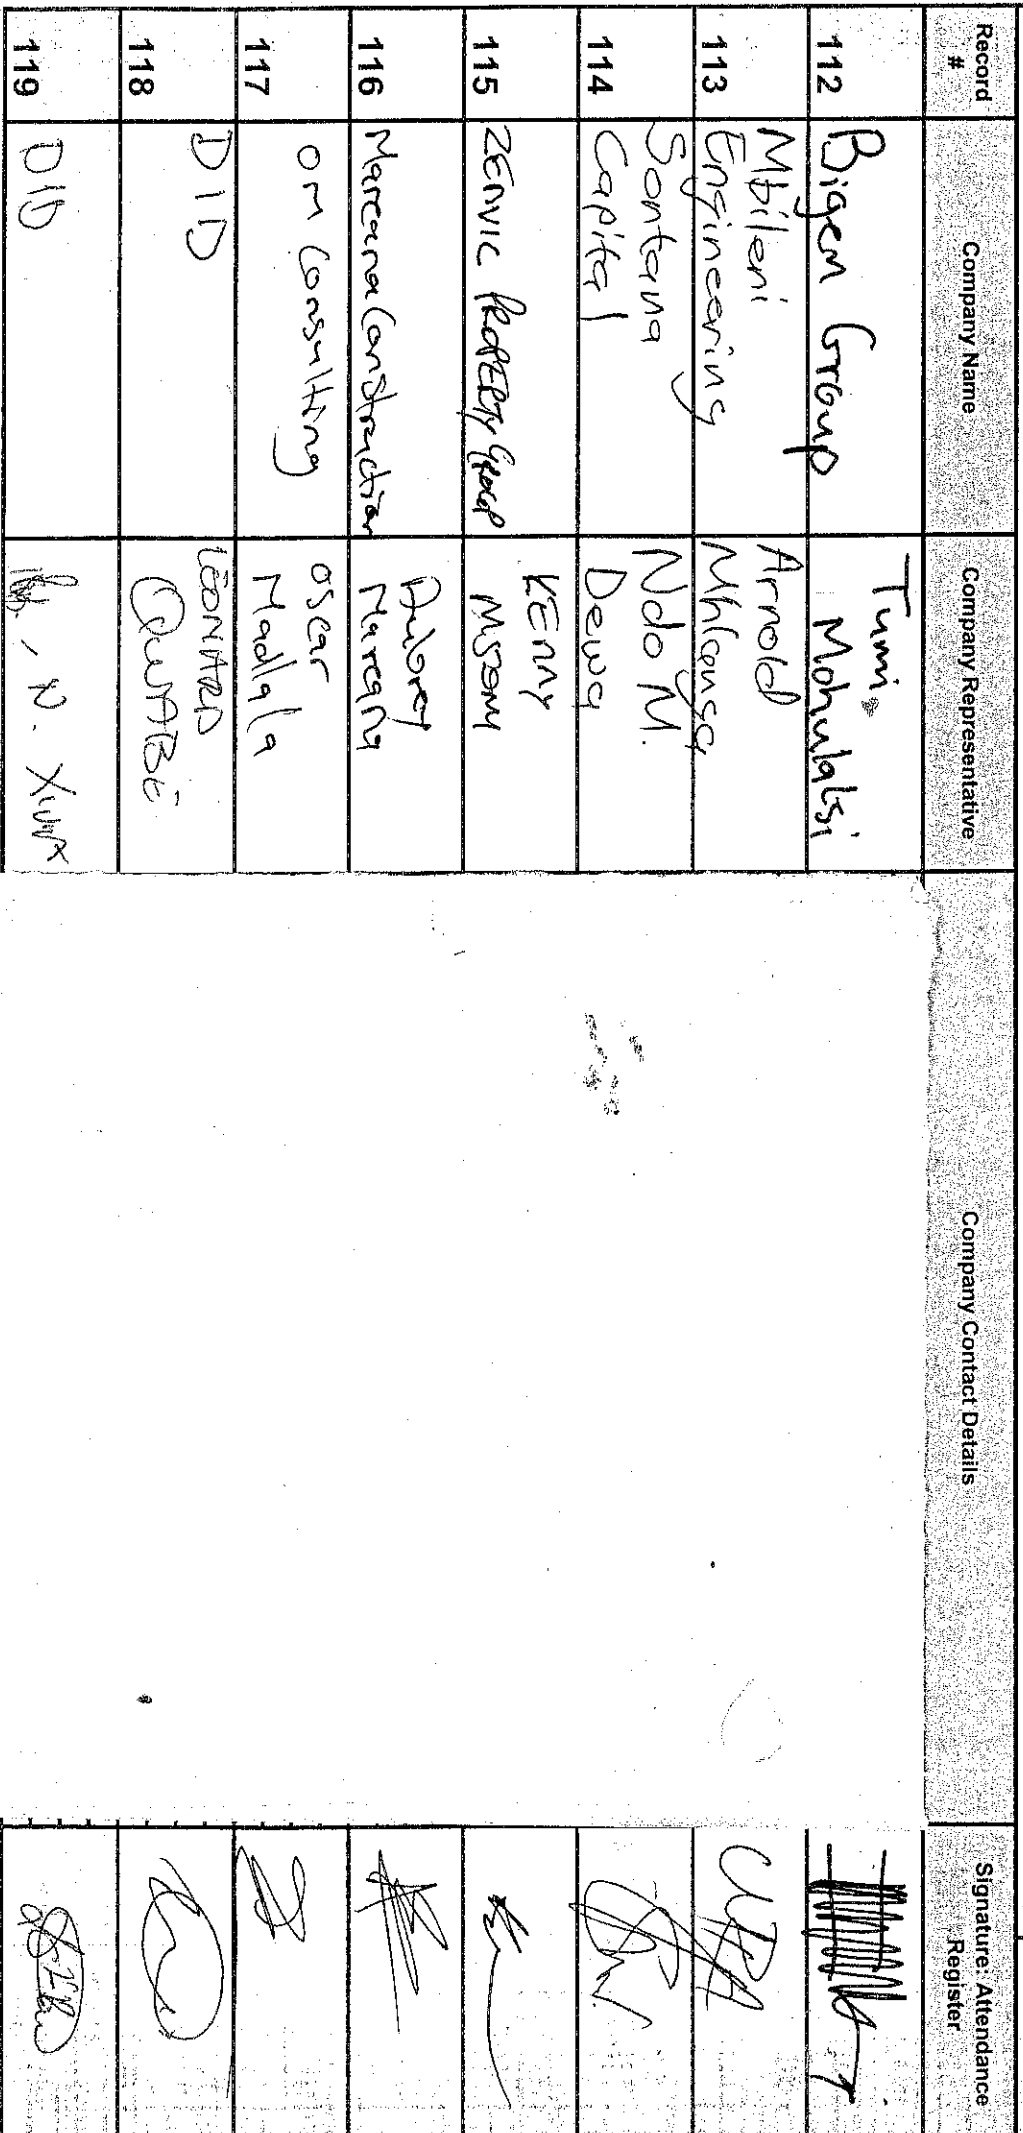 Record # Company Name Company Representative Company Contact Details Signature: Attendance Register
112 Bigen Group Tumi Mohulatsi
113 Mbilani Engineering Arnold Mhlanga
114 Sontana Capital Ndo M. Dewa
115 ZENVIC PROPERTY GROUP KENNY
116 Mareana Construction Mareana
117 OM Consulting Oscar Madlala
118 DID LEONARD QWABE
119 DID N.